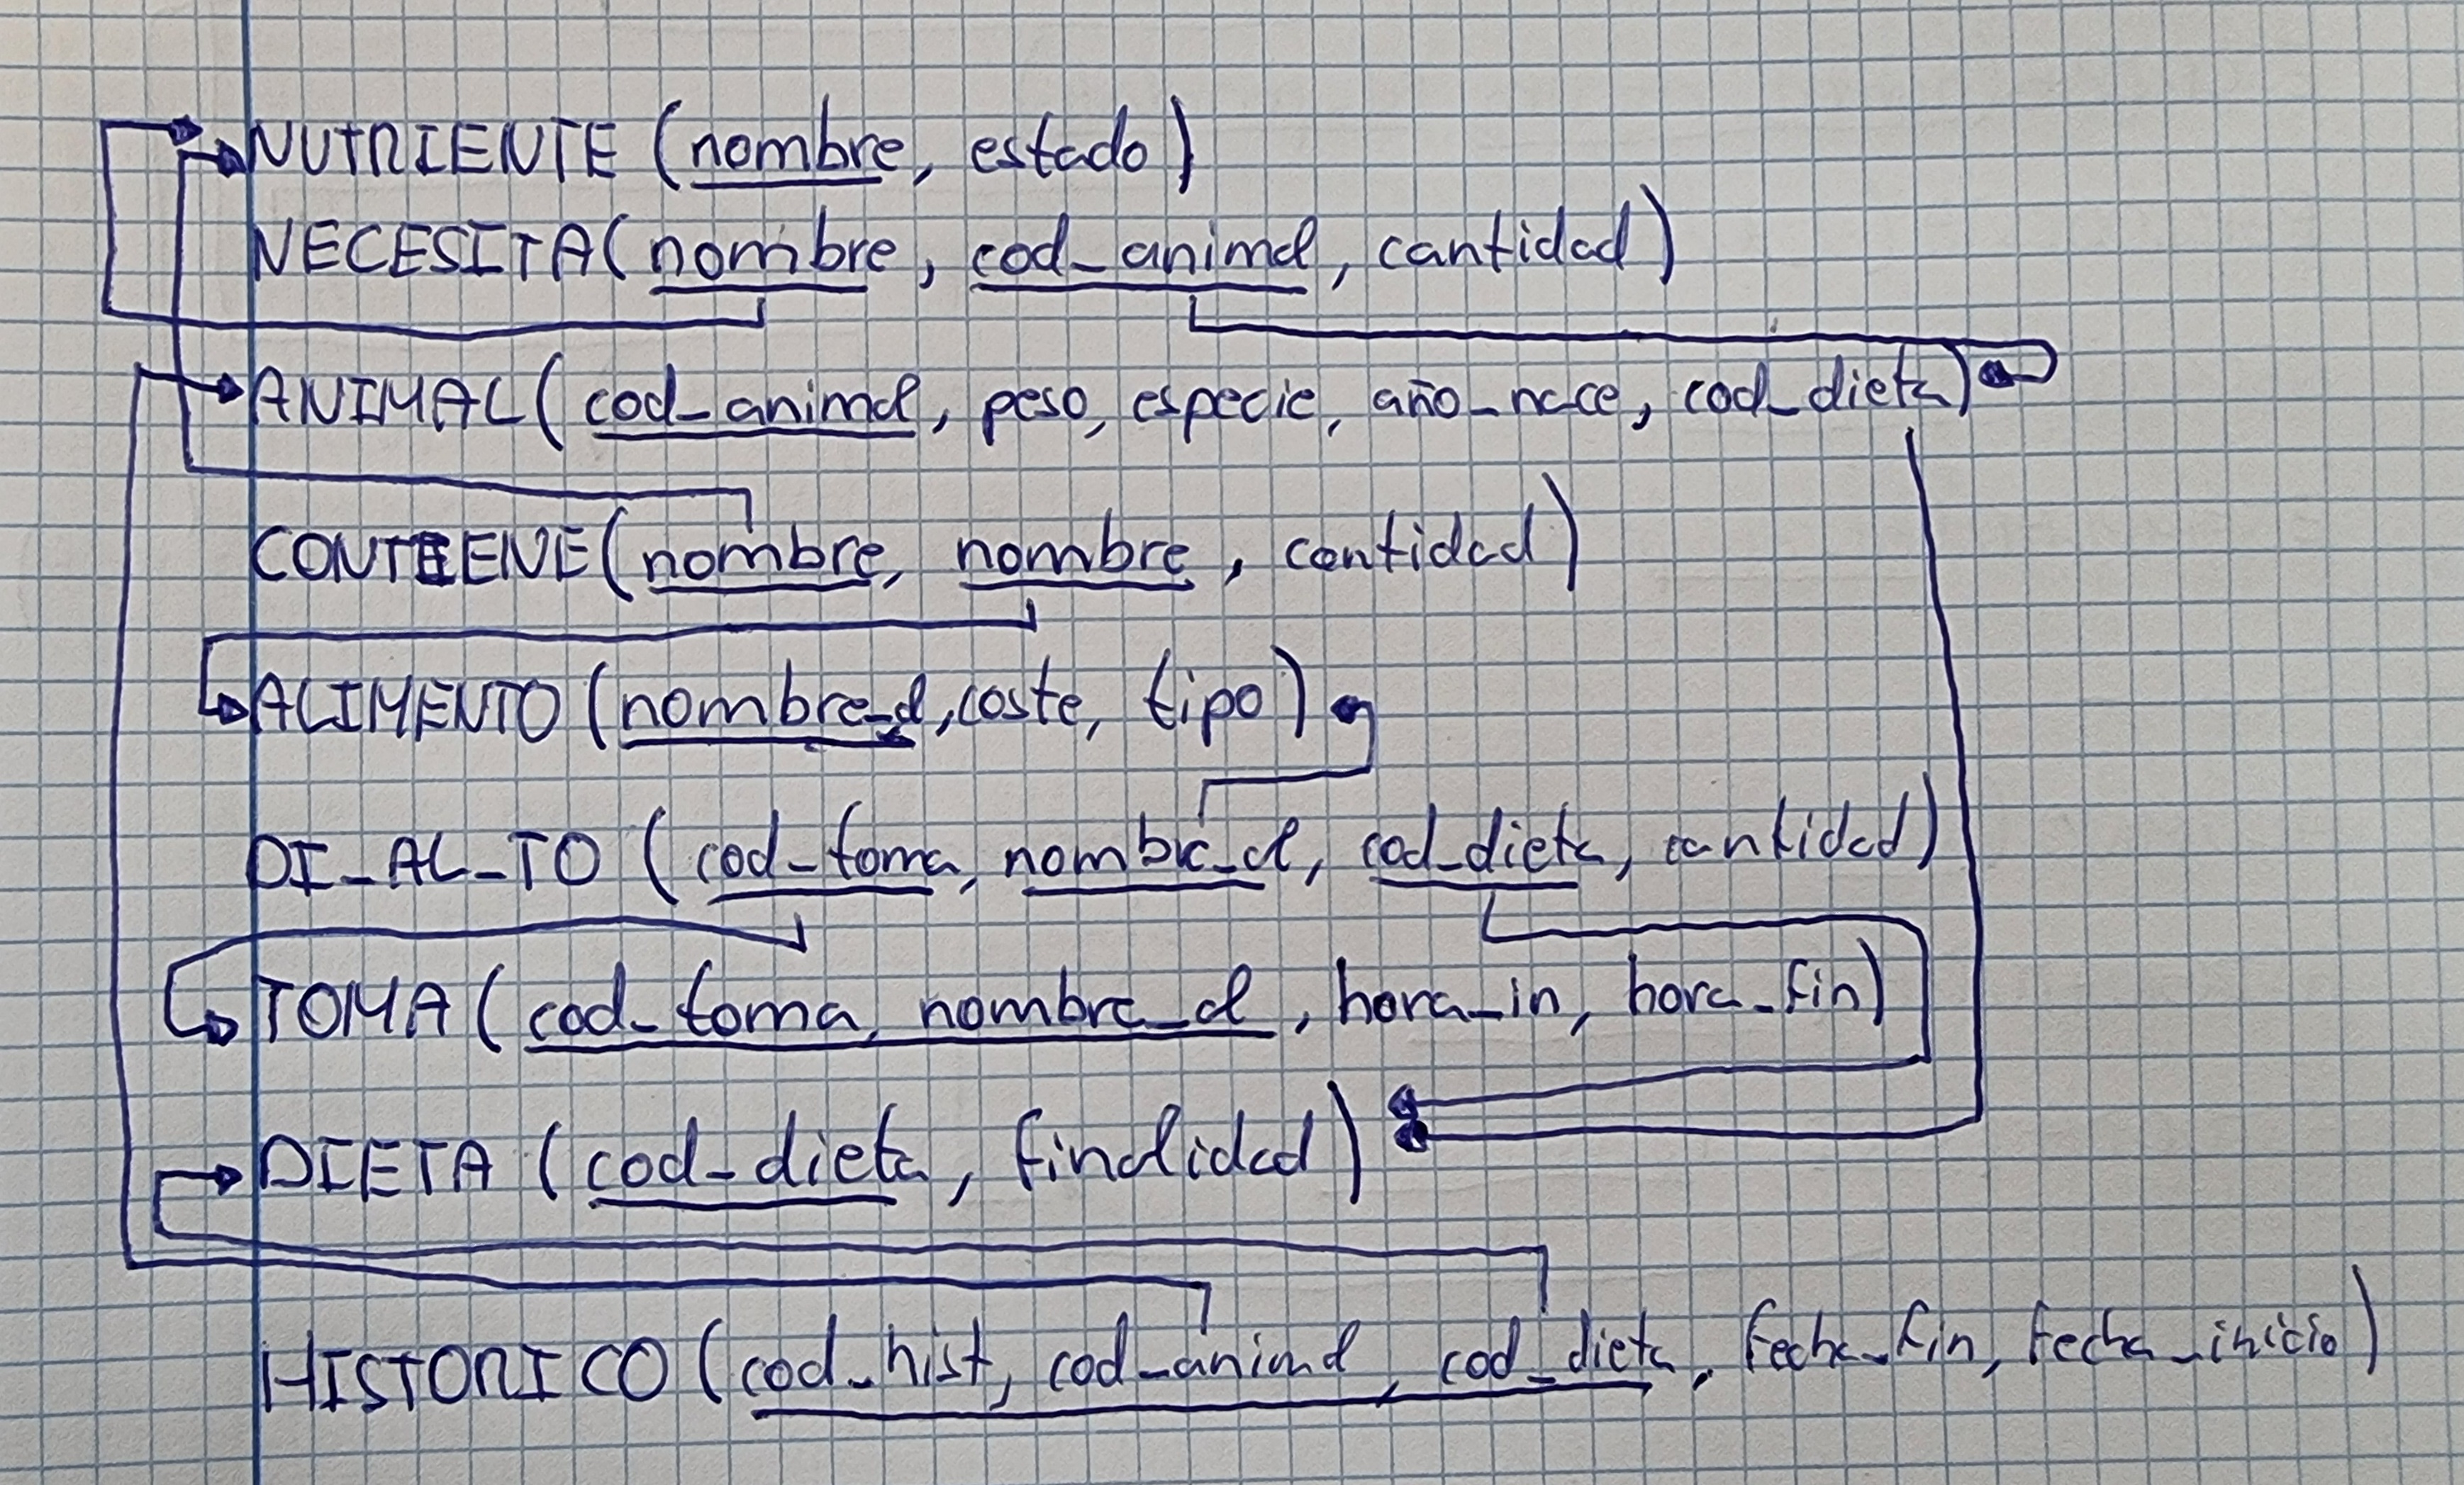 NUTRIENTE (nombre, estado)
NECESITA (nombre, cod_animal, cantidad)
ANIMAL (cod_animal, peso, especie, año_nace, cod_dieta)
CONTIENE (nombre, nombre, cantidad)
ALIMENTO (nombre_al, coste, tipo)
DI_AL_TO (cod_toma, nombre_al, cod_dieta, cantidad)
TOMA (cod_toma, nombre_al, hora_in, hora_fin)
DIETA (cod_dieta, finalidad)
HISTORICO (cod_hist, cod_animal, cod_dieta, fecha_fin, fecha_inicio)